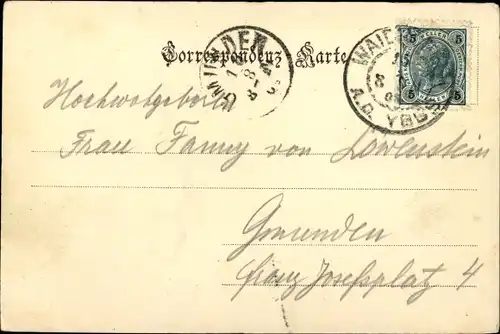 Correspondenz Karte
GMUNDEN
5 5
5 5
A.D. YBBS
Hochwolgeboren
Frau Fanny von Löwenstein
Gmunden
Franz Josefsplatz 4